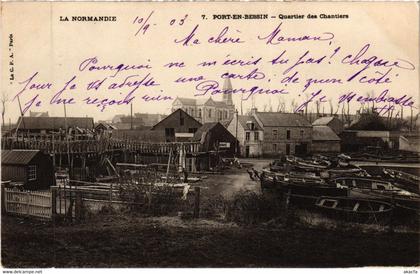 LA NORMANDIE
10/9 - 03
7. PORT-EN-BESSIN - Quartier des Chantiers
Ma chère Maman,
Pourquoi ne m'écris tu pas? chaque
Jour je t'adresse une carte & de mon coté
je ne reçois rien Pourquoi?
Je t'embrasse
" La C. P. A. " Paris